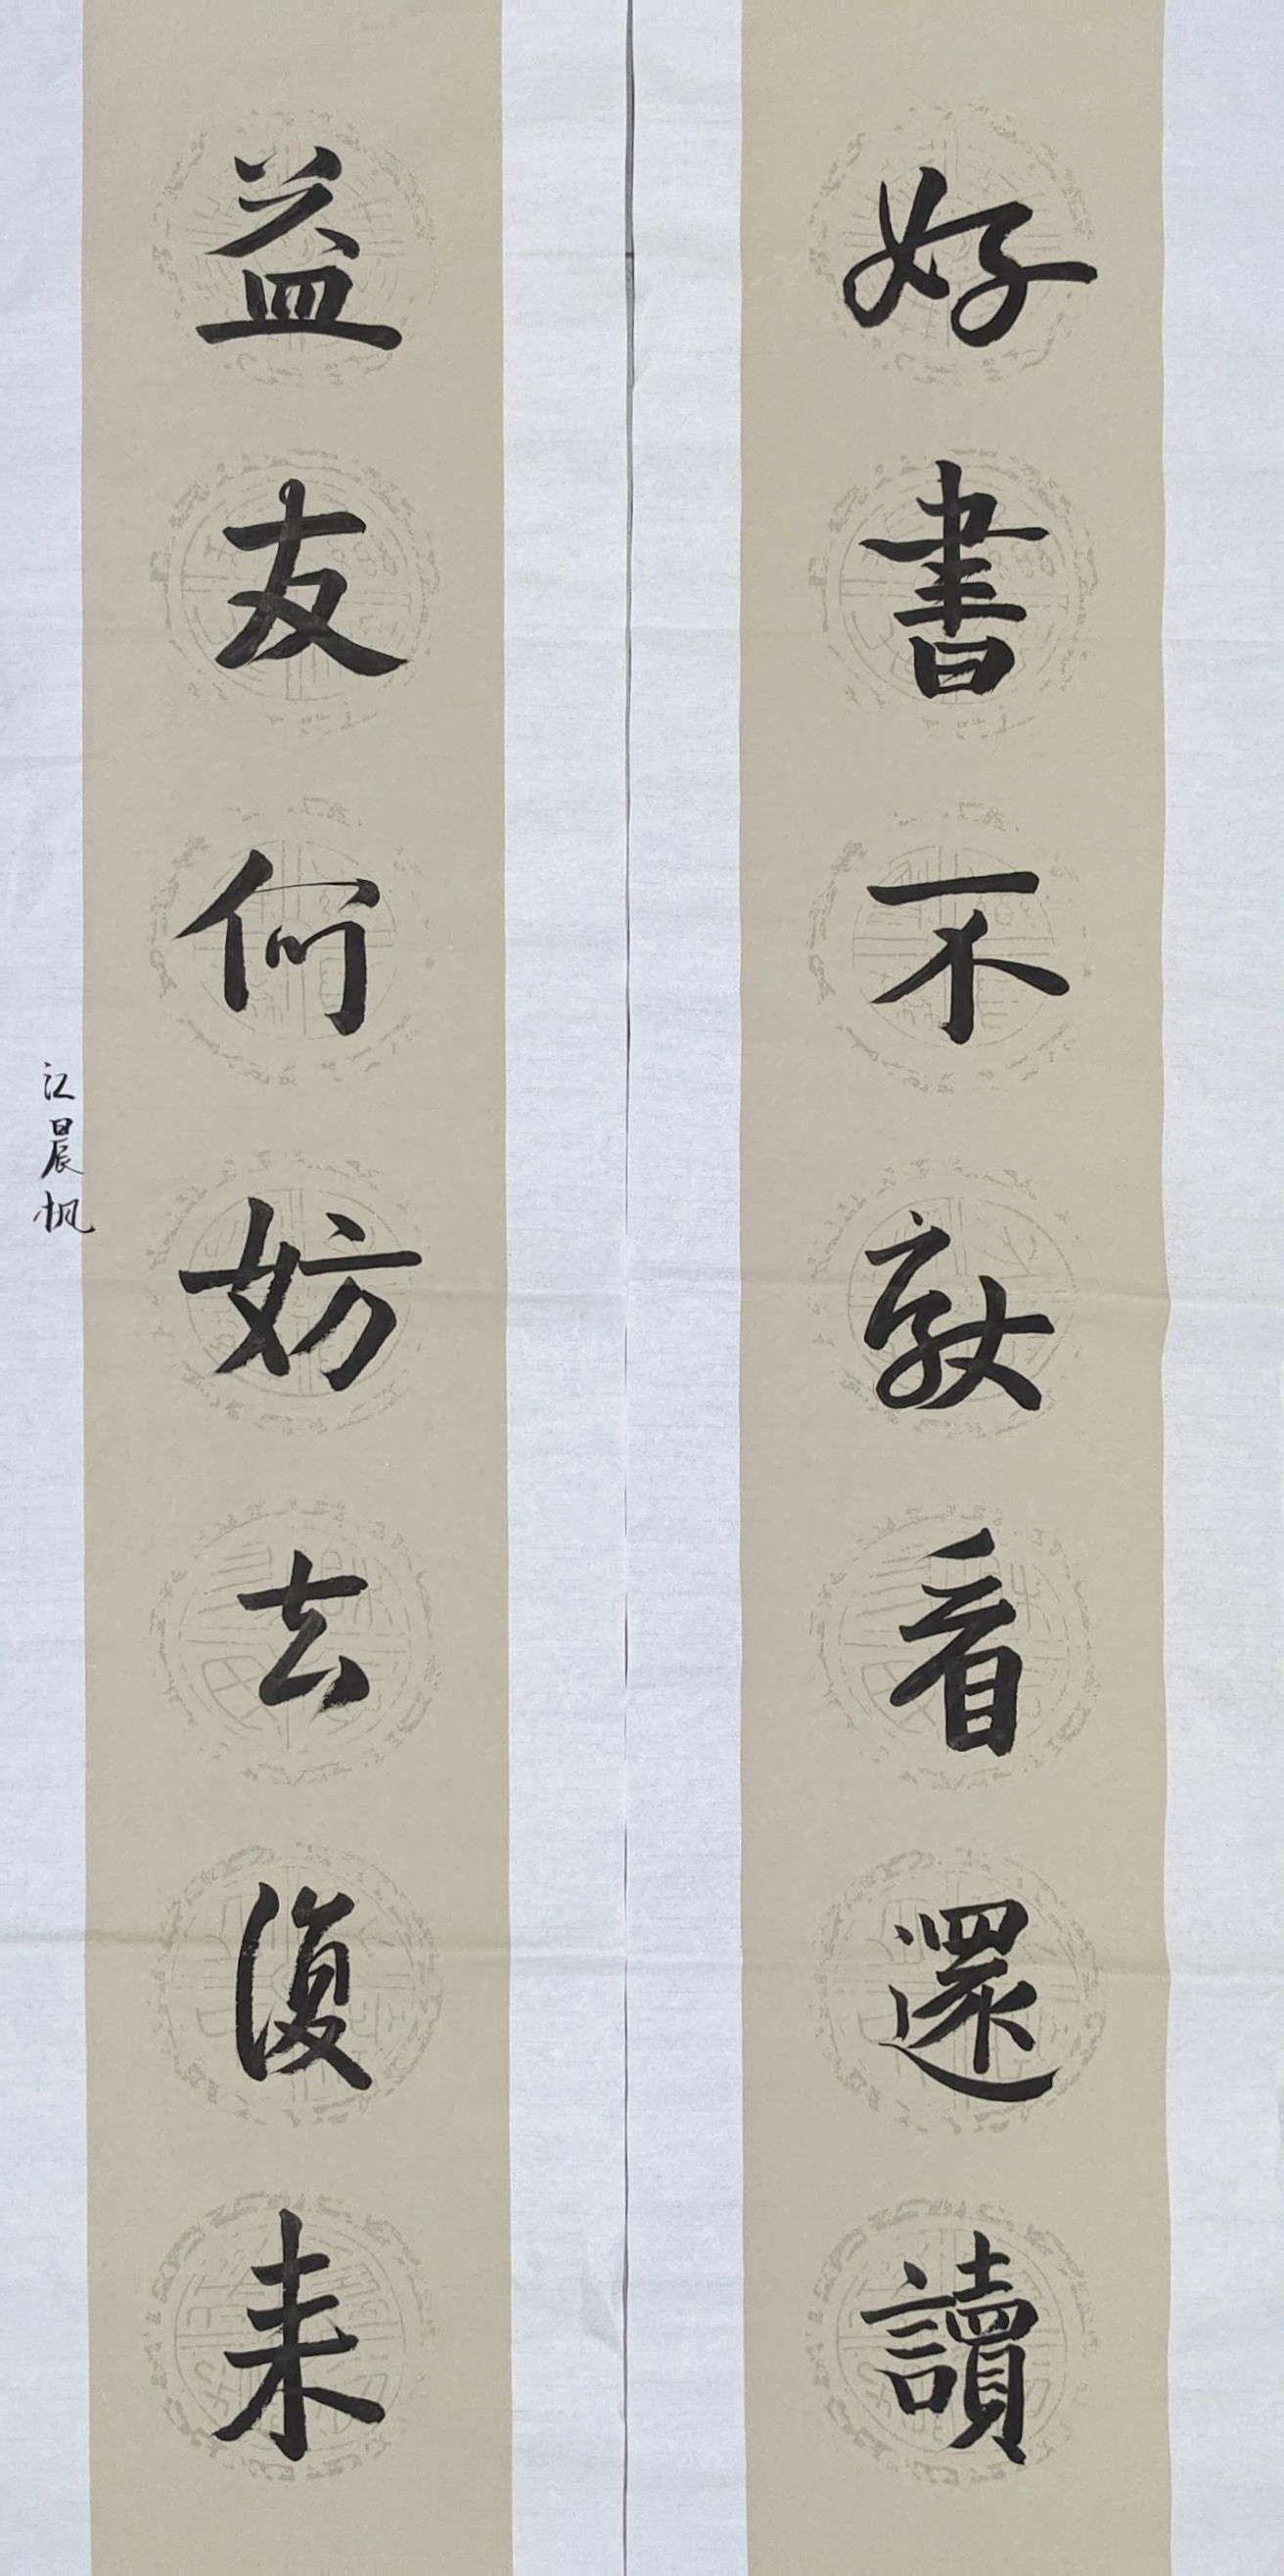 好書不厭看還讀
益友何妨去復来
江晨枫